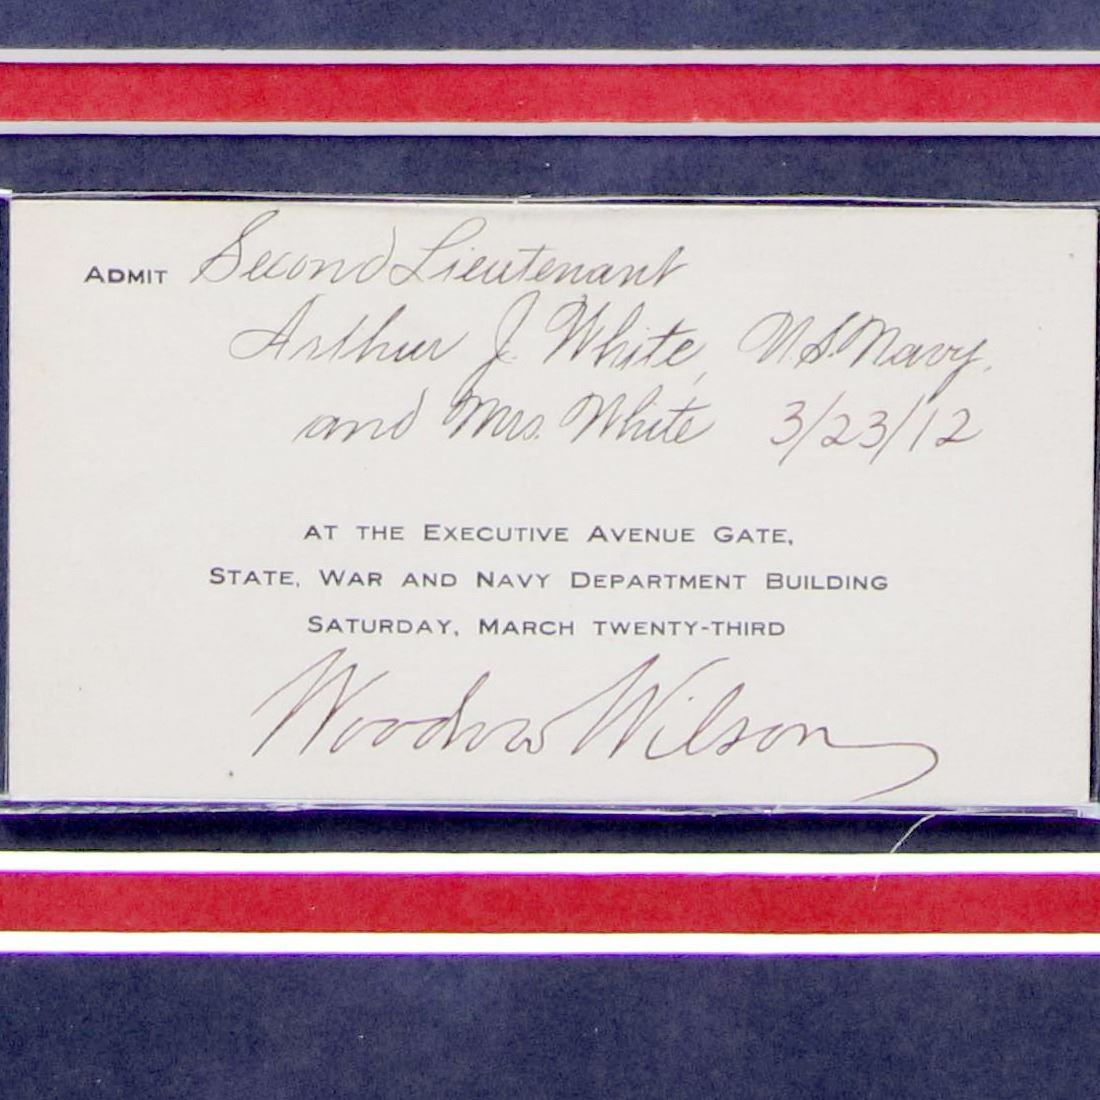 ADMIT Second Lieutenant
Arthur J. White, U.S. Navy.
and Mrs. White 3/23/12
AT THE EXECUTIVE AVENUE GATE,
STATE, WAR AND NAVY DEPARTMENT BUILDING
SATURDAY, MARCH TWENTY-THIRD
Woodrow Wilson